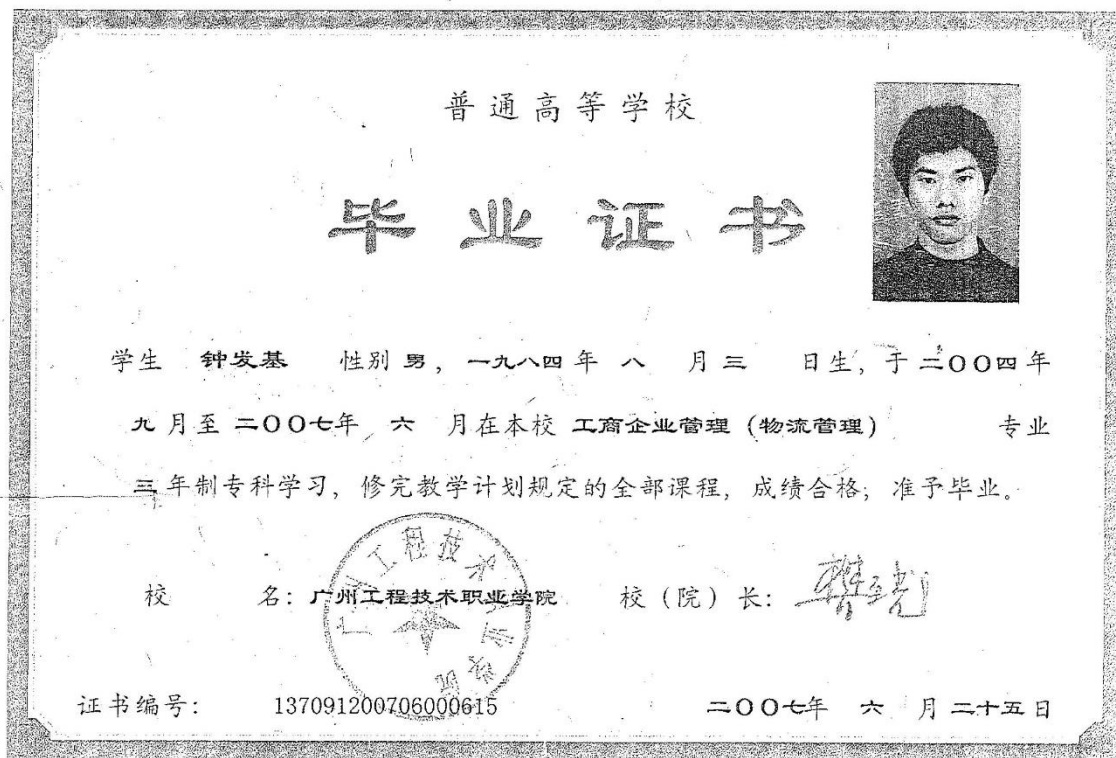 普通高等学校
毕业证书
学生 钟发基 性别 男，一九八四年 八 月 三 日生，于 二〇〇四年
九 月至 二〇〇七年 六 月在本校 工商企业管理（物流管理） 专业
三 年制专科学习，修完教学计划规定的全部课程，成绩合格，准予毕业。
校 名：广州工程技术职业学院 校（院）长：
广州工程技术职业学院
证书编号： 137091200706000615 二〇〇七年 六 月 二十五日